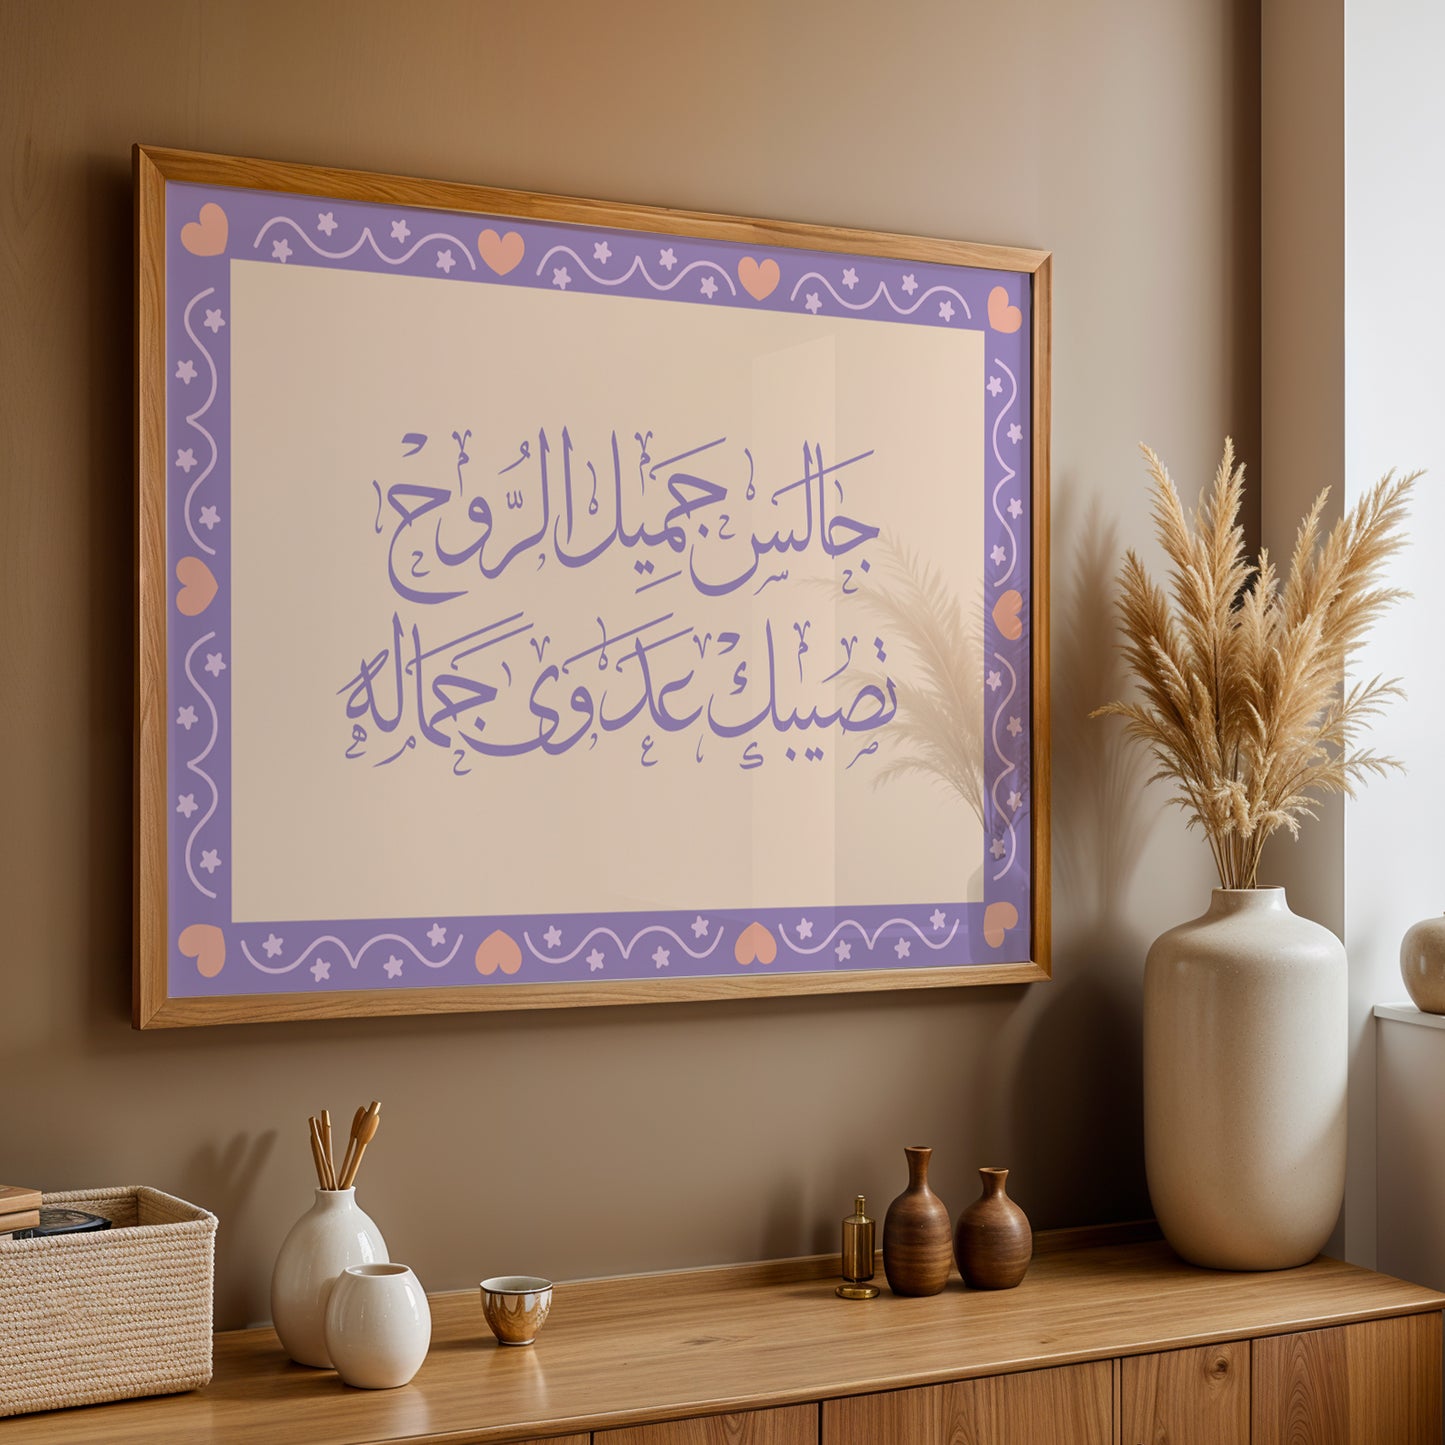 جالس جميل الرُّوح
تصيبك عدوى جماله